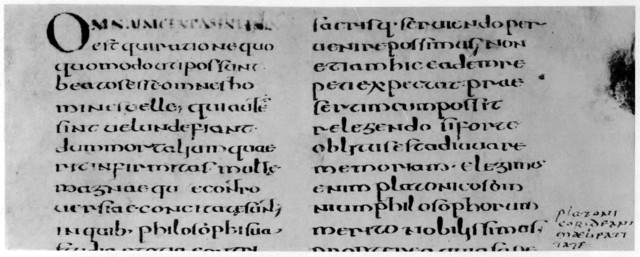 OMNIUM CERTA SENTEN
est qui ratione quo
quo modo uti possunt
beatos esse omnes ho
mines velle; qui autē
sint vel unde fiant·
dum mortalium quae
rit infirmitas multae
magnaequ e contro
versiae concitatae sunt;
in quib· philosophi sua
sacrisq· serviendo per
venire possimus, non
etiam hic eadem re
peti expectat· prae
sertim cum possit
relegendo si forte
oblitus est adiuvare
memoriam· elegimo
enim platonicos om
nium philosophorum
merito nobilissimos,
platoni